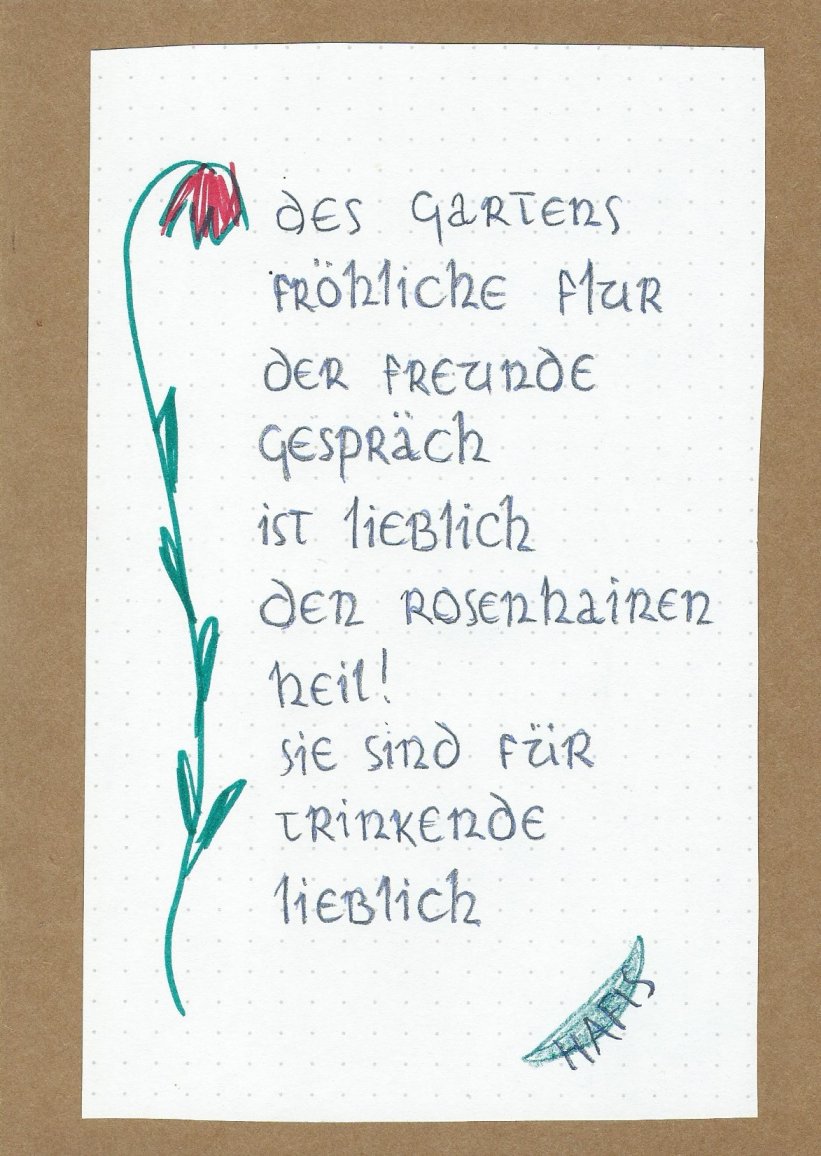 des Gartens
fröhliche flur
der freunde
Gespräch
ist lieblich
den Rosenhainen
heil!
sie sind für
trinkende
lieblich
HAFIS